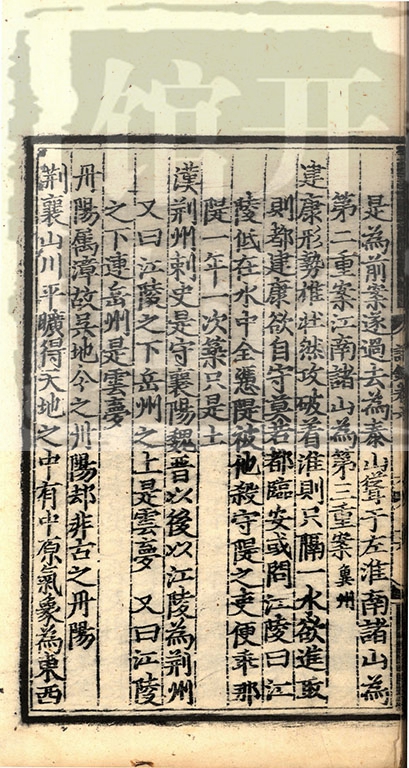 是為前案遂過去為泰山聳于左淮南諸山為
第二重案江南諸山為第三重案冀州
建康形勢雄壯然攻破着淮則只隔一水欲進取
則都建康欲自守莫若都臨安或問江陵曰江
陵低在水中全憑隄被他殺守隄之吏便乖那
隄一年一次築只是土
漢荆州刺史是守襄陽魏晋以後以江陵為荆州
又曰江陵之下岳州之上是雲夢 又曰江陵
之下連岳州是雲夢
丹陽属漳故吴地今之丹陽却非古之丹陽
荆襄山川平曠得天地之中有中原氣象為東西